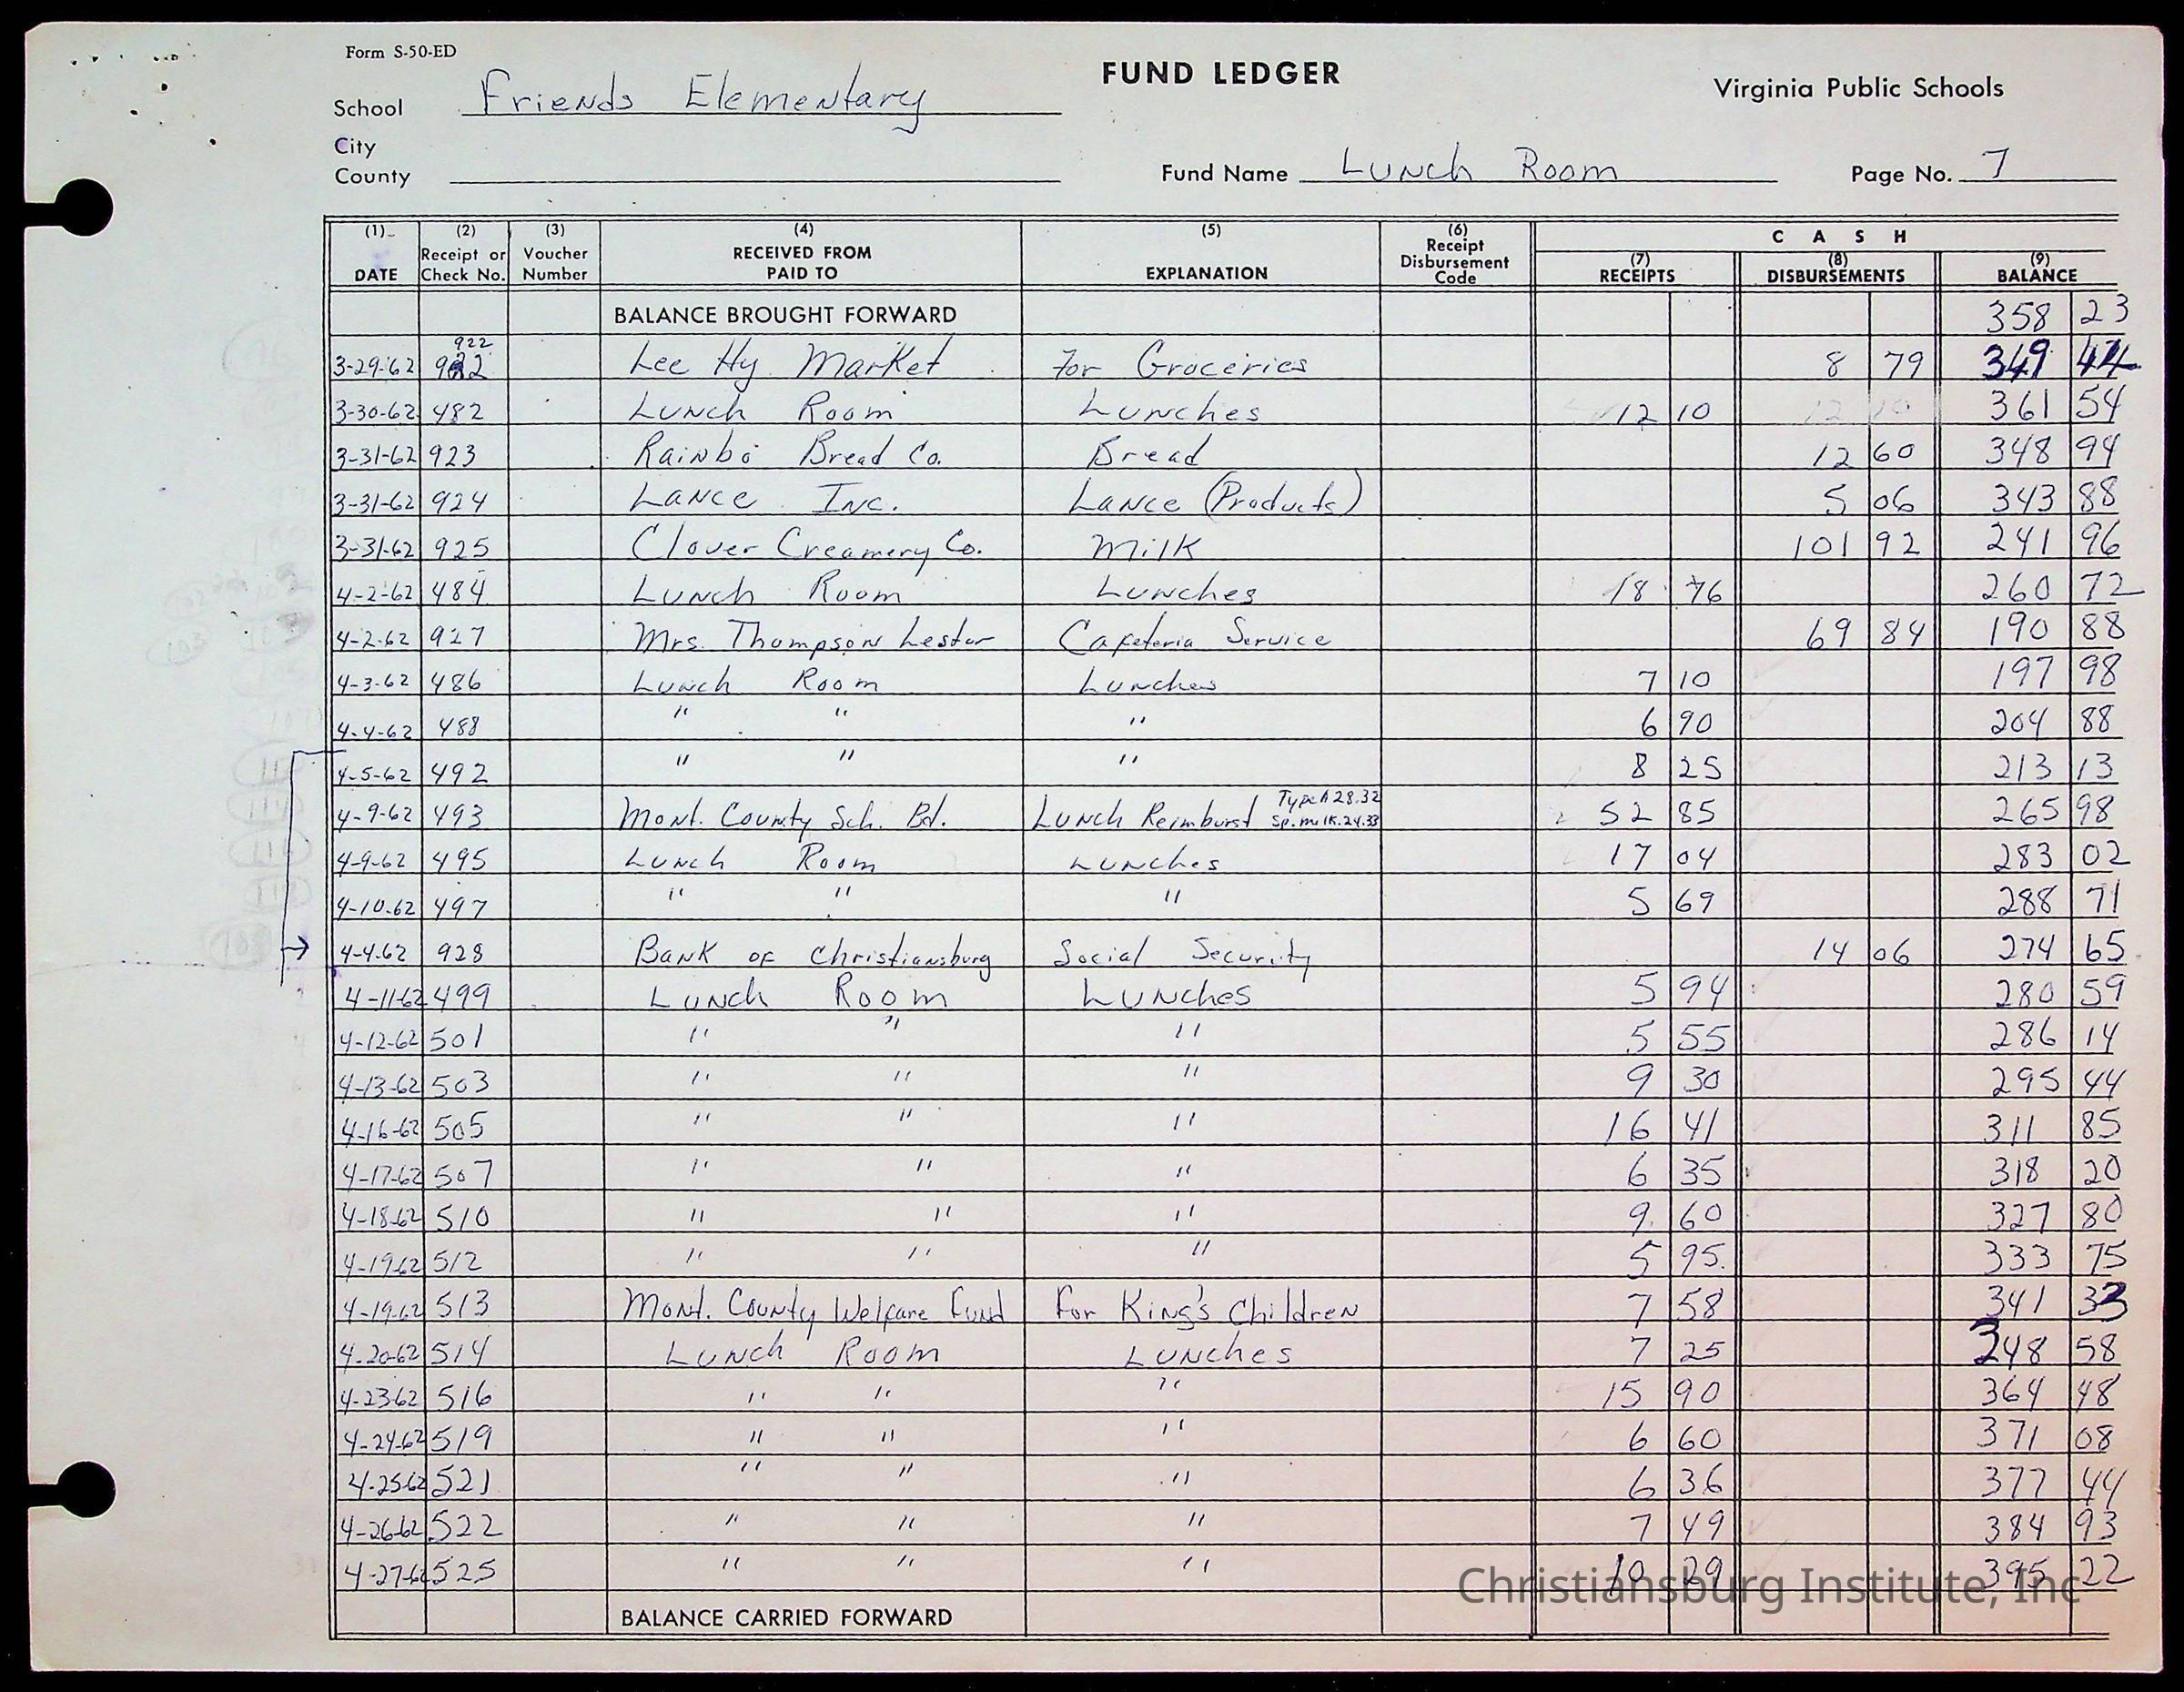 Form S-50-ED
FUND LEDGER
Virginia Public Schools
School Friends Elementary
City
County
Fund Name Lunch Room
Page No. 7
(1) DATE (2) Receipt or Check No. (3) Voucher Number (4) RECEIVED FROM PAID TO (5) EXPLANATION (6) Receipt Disbursement Code CASH (7) RECEIPTS (8) DISBURSEMENTS (9) BALANCE
BALANCE BROUGHT FORWARD 358 23
922
3-29-62 922 Lee Hy Market For Groceries 8 79 349 44
3-30-62 482 Lunch Room Lunches 12 10 361 54
3-31-62 923 Rainbo Bread Co. Bread 12 60 348 94
3-31-62 924 Lance Inc. Lance (Products) 5 06 343 88
3-31-62 925 Clover Creamery Co. Milk 101 92 241 96
4-2-62 484 Lunch Room Lunches 18 76 260 72
4-2-62 927 Mrs. Thompson Lester Cafeteria Service 69 84 190 88
4-3-62 486 Lunch Room Lunches 7 10 197 98
4-4-62 488 " " " 6 90 204 88
4-5-62 492 " " " 8 25 213 13
4-9-62 493 Mont. County Sch. Bd. Lunch Reimburst Type A 28.32 Sp. milk. 24.53 52 85 265 98
4-9-62 495 Lunch Room Lunches 17 04 283 02
4-10-62 497 " " " 5 69 288 71
4-4-62 928 Bank of Christiansburg Social Security 14 06 274 65
4-11-62 499 Lunch Room Lunches 5 94 280 59
4-12-62 501 " " " 5 55 286 14
4-13-62 503 " " " 9 30 295 44
4-16-62 505 " " " 16 41 311 85
4-17-62 507 " " " 6 35 318 20
4-18-62 510 " " " 9 60 327 80
4-19-62 512 " " " 5 95 333 75
4-19-62 513 Mont. County Welfare Fund For King's Children 7 58 341 33
4-20-62 514 Lunch Room Lunches 7 25 348 58
4-23-62 516 " " " 15 90 364 48
4-24-62 519 " " " 6 60 371 08
4-25-62 521 " " " 6 36 377 44
4-26-62 522 " " " 7 49 384 93
4-27-62 525 " " " 10 29 395 22
BALANCE CARRIED FORWARD
Christiansburg Institute, Inc